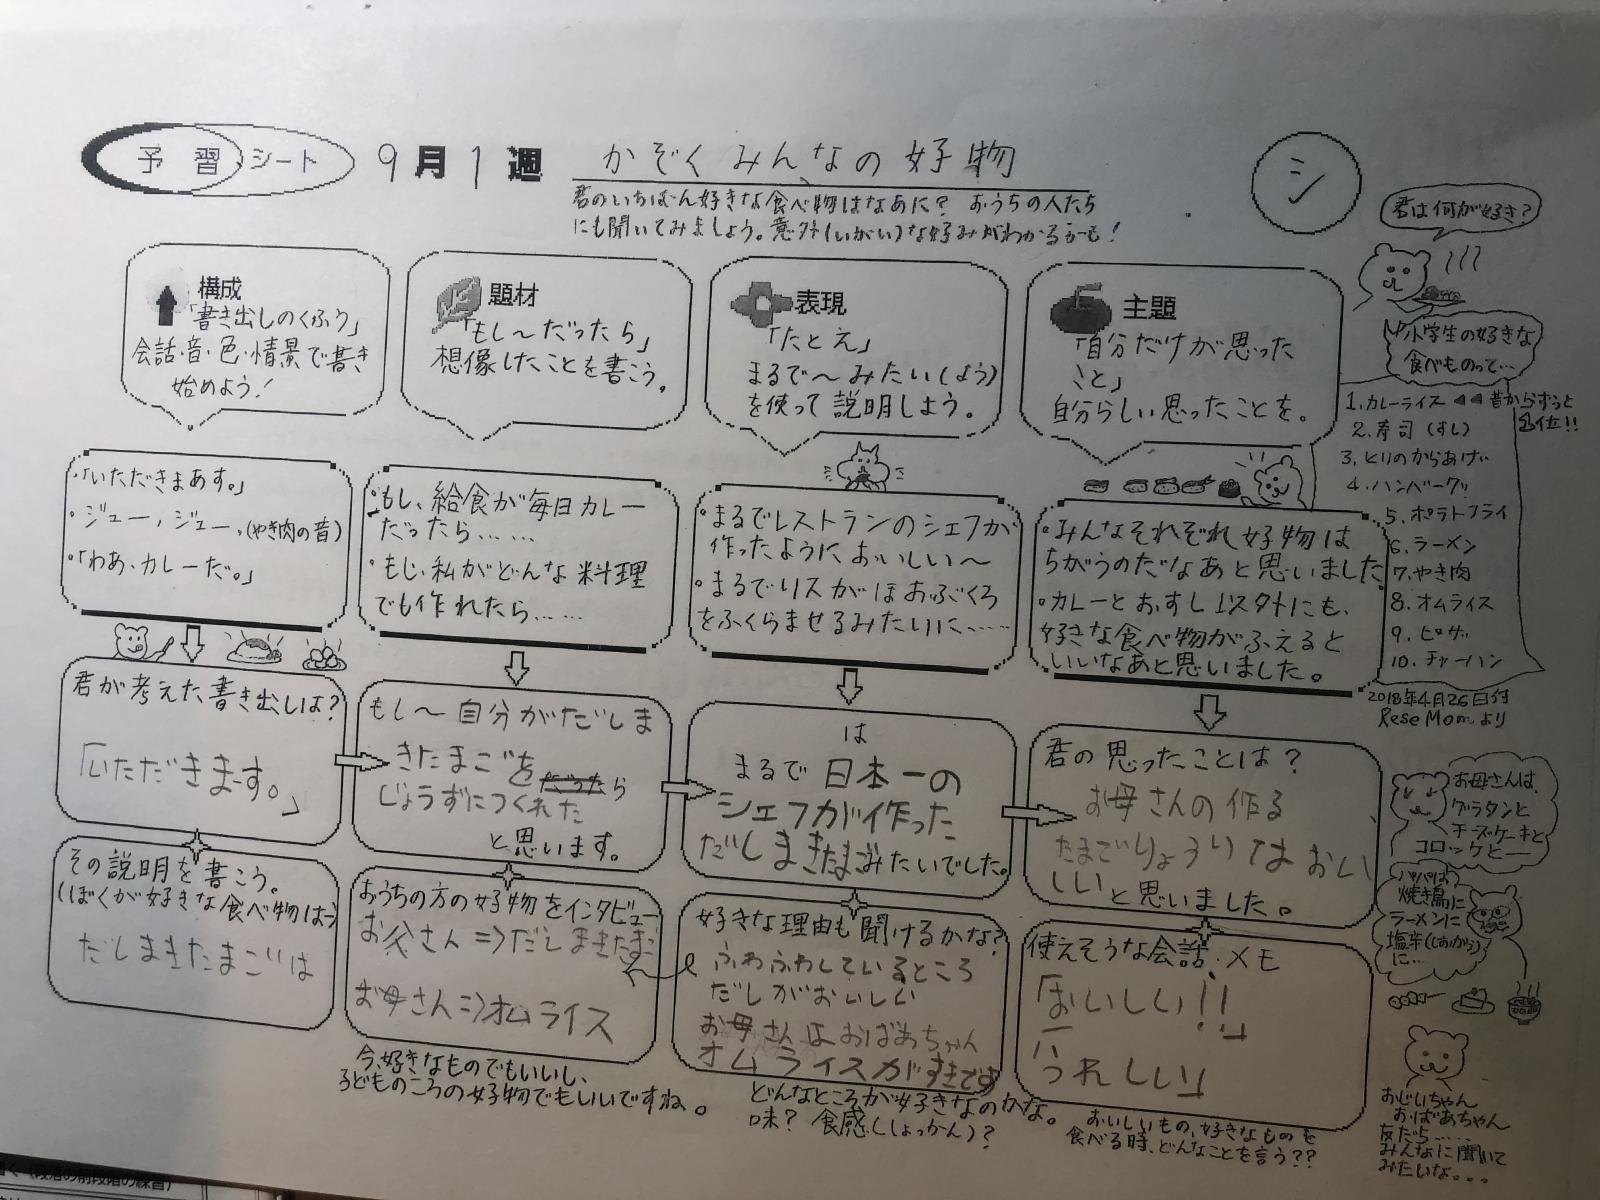 予習シート 9月1週 かぞくみんなの好物
シ
君のいちばん好きな食べ物はなあに? おうちの人たち
にも聞いてみましょう。意外(いがい)な好みがわかるかも!
構成
「書き出しのくふう」
会話・音・色・情景で書き
始めよう!
題材
「もし〜だったら」
想像したことを書こう。
表現
「たとえ」
まるで〜みたい(よう)
を使って説明しよう。
主題
「自分だけが思った
こと」
自分らしい思ったことを。
君は何が好き?
小学生の好きな
食べものって…
1.カレーライス ◀◀昔からずっと
1位!!
2.寿司(すし)
3.とりのからあげ
4.ハンバーグ
5.ポテトフライ
6.ラーメン
7.やき肉
8.オムライス
9.ピザ
10.チャーハン
2018年4月26日付
ReseMomより
・「いただきまあす。」
・ジュー、ジュー、(やき肉の音)
・「わあ、カレーだ。」
・もし、給食が毎日カレー
だったら……
・もし、私がどんな料理
でも作れたら……
・まるでレストランのシェフが
作ったようにおいしい〜
・まるでリスがほおぶくろ
をふくらませるみたいに……
・みんなそれぞれ好物は
ちがうのだなあと思いました
・カレーとおすし以外にも、
好きな食べ物がふえると
いいなあと思いました。
君が考えた書き出しは?
「いただきます。」
もし〜自分がだしま
きたまごを だったら
じょうずにつくれた
と思います。
は
まるで日本一の
シェフが作った
だしまきたまごみたいでした。
君の思ったことは?
お母さんの作る
たまごりょうりはおい
しいと思いました。
その説明を書こう。
(ぼくが好きな食べ物は→)
だしまきたまごは
おうちの方の好物をインタビュー
お父さん⇒だしまきたまご
お母さん⇒オムライス
今、好きなものでもいいし、
子どものころの好物でもいいですね。
好きな理由も聞けるかな?
ふわふわしているところ
だしがおいしい
お母さんはおばあちゃん
オムライスがすきです
どんなところが好きなのかな。
味? 食感(しょっかん)?
使えそうな会話メモ
「おいしい!!」
「うれしい」
おいしいもの、好きなものを
食べる時、どんなことを言う??
お母さんは、
グラタンと
チーズケーキと
コロッケと――
パパは
焼き鳥に
ラーメンに
塩辛(しおから)
に…
おじいちゃん
おばあちゃん
友だち……
みんなに聞いて
みたいな。。。
く(段落の前段階の練習)